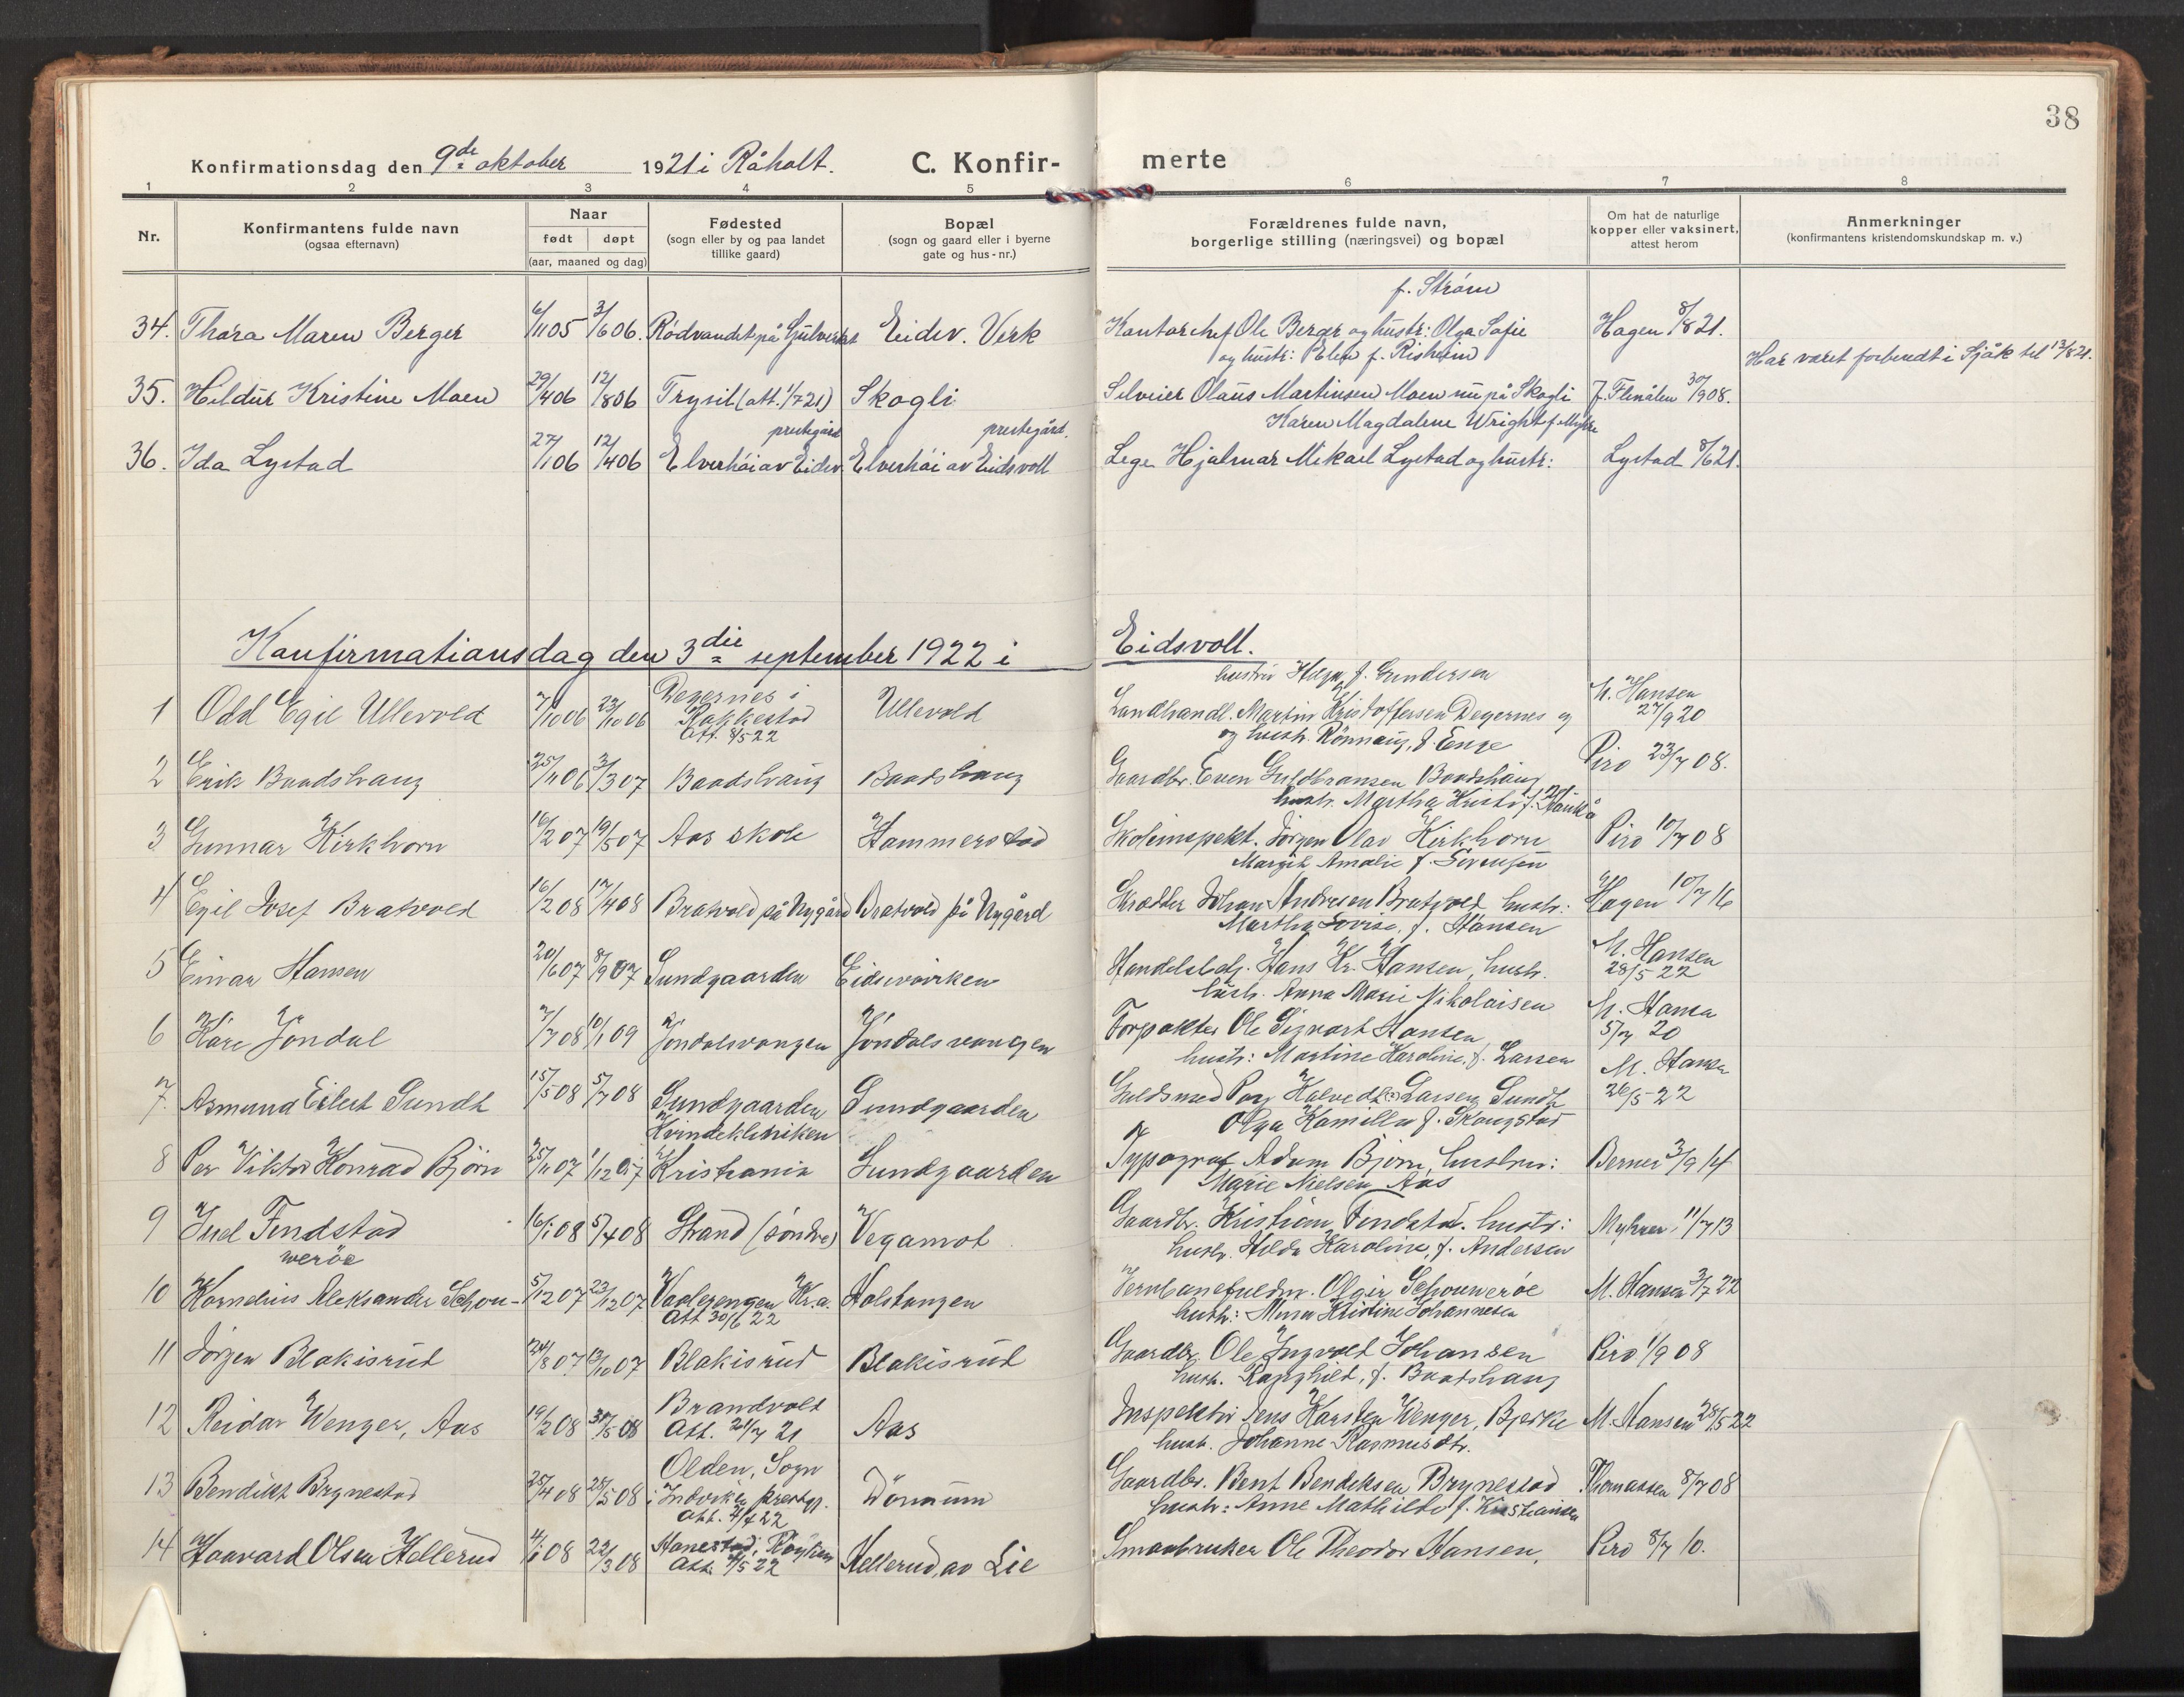 38
Konfirmationsdag den 9de oktober 1921 i Råholt. C. Konfir-
merte
1 2 3 4 5 6 7 8
Nr.
Konfirmantens fulde navn
(ogsaa efternavn)
Naar
født døpt
(aar, maaned og dag)
Fødested
(sogn eller by og paa landet
tillike gaard)
Bopæl
(sogn og gaard eller i byerne
gate og hus-nr.)
Forældrenes fulde navn,
borgerlige stilling (næringsvei) og bopæl
Om hat de naturlige
kopper eller vaksinert,
attest herom
Anmerkninger
(konfirmantens kristendomskundskap m. v.)
f. Strøm
34. Thora Maren Berger 6/11 05 3/6 06. Rödvandet på Gulverket Eidsv. Verk Kontorchef Ole Berger og hustr: Olga Sofie Hagen 8/8 21.
Har været forberedt i Sjåk til 13/8 21.
og hustr: Elen f. Risheim
35. Hildur Kristine Moen 29/4 06 12/8 06 Trysil (att. 1/7 21) Skogli Selveier Olaus Martinsen Moen nu på Skogli J. Flenålen 30/9 08.
prestegård prestegård. Karen Magdalene Wright f. Myhre
36. Ida Lystad 27/1 06 12/4 06 Elverhöi av Eidsv. Elverhöi av Eidsvoll Lege Hjalmar Mikael Lystad og hustr: Lystad 8/6 21.
Konfirmationsdag den 3die september 1922 i Eidsvoll.
hustru Helga f. Gundersen
1 Odd Egil Ullevold 7/10 06 23/10 06 Degernes i Rakkestad Att. 8/5 22 Ullevold Landhandl. Martin Kristoffersen Degernes og M. Hansen 27/9 20
og hustr. Rönnaug, f. Enge
2 Erik Baadshaug 25/11 06 3/3 07 Baadshaug Baadshaug Gaardbr. Even Guldbransen Baadshaug Piro 23/7 08.
hustr. Martha Kristi f.
3 Gunnar Kirkhorn 16/2 07 19/5 07 Aas skole Hammerstad Skoleinspekt. Jörgen Olav Kirkhorn Piro 10/7 08
Margit Amalie f. Sörensen
4 Egil Josef Bratvold 16/2 08 17/4 08 Bratvold på Nygård Bratvold på Nygård Skrædder Johan Andresen Bratvold hustr: Hagen 10/7 16
Martha Lovise, f. Hansen
5 Einar Hansen 20/6 07 8/9 07 Sundgaarden Eidsvoirken Handelsbetj. Hans Kr. Hansen, hustr. M. Hansen 28/5 22
hustr. Anna Marie Nikolaisen
6 Kåre Jöndal 7/7 08 10/1 09 Jöndalsvangen Jöndalsvangen Forpakter Ole Sigvart Hansen M. Hansen 5/7 20
hustr: Martine Karoline, f. Larsen
7. Asmund Eilert Sundt 15/5 08 5/7 08 Sundgaarden Sundgaarden Guldsmed Halvdt. Larsen Sundt M. Hansen 26/5 22
Olga Kamilla f. Skaugstad
8 Per Viktor Konrad Björn 25/11 07 1/12 07 Kvindeklinikken Kristiania Sundgaarden Typograf Adam Björn, hustru: Berner 3/9 14
Marie Nielsen Aas
9 Juel Findstad 16/1 08 5/4 08 Strand (söndre) Vegamot Gaardbr. Kristian Findstad. hustr: Myhrer, 11/7 13
hustr. Hilda Karoline, f. Andersen
10 Kornelius Aleksander Schouweröe 5/12 07 23/12 07 Vaalerengen Kr.a. Att 30/6 22 Holstangen Jernbanefuldm. Olgir Schouweröe M. Hansen 3/7 22
hustr: Kristine Johannesen
11 Jörgen Blakisrud 24/8 07 13/10 07 Blakisrud Blakisrud Gaardbr. Ole Ingvald Johansen Piro 1/9 08
hustr. Ragnhild, f. Baatshaug
12 Reidar Wenger, Aas 19/2 08 30/5 08 Brandvold Att. 21/7 21 Aas Inspektör Jens Karsten Wenger, Bjerke M. Hansen 28/5 22
hustr. Johanne Rasmusdtr.
13 Bendikt Brynestad 25/4 08 28/5 08 Olden, Sogn i Indviken prestgj. Att. 4/4 22 Dömmum Gaardbr. Bent Bendiksen Brynestad Thomassen 8/7 08
hustr: Anne Mathilde f. Kristiansen
14 Haavard Olsen Hellerud 4/1 08 22/3 08 Hanestad, Röyken Att. 7/5 22 Hellerud, av Lie Smaabruker Ole Theodor Hansen, Piro 8/7 10.